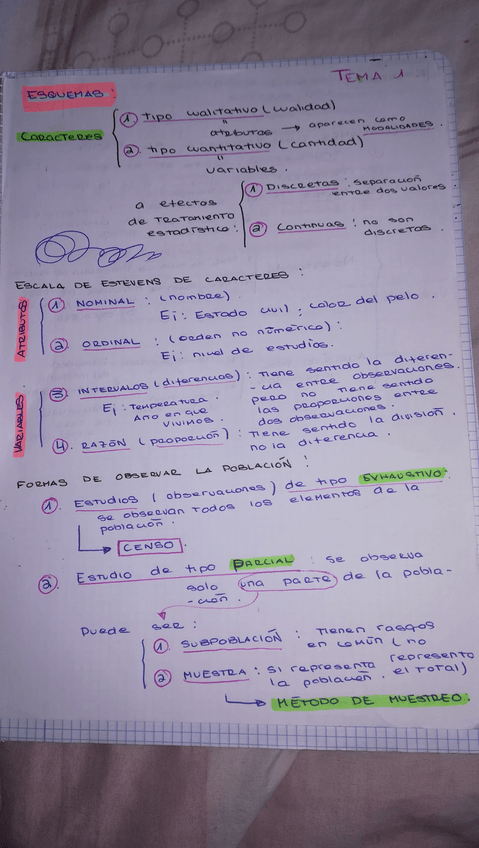 TEMA 1
ESQUEMAS:
CARACTERES
① Tipo cualitativo (cualidad)
"
atributos → aparecen como MODALIDADES.
② tipo cuantitativo (cantidad)
"
variables.
a efectos de TRATAMIENTO estadístico:
① DISCRETAS: separación entre dos valores.
② Continuas: no son discretas.
ESCALA DE ESTEVENS DE CARACTERES:
ATRIBUTOS
① NOMINAL: (nombre).
Ej: Estado civil, color del pelo.
② ORDINAL: (orden no numérico):
Ej: nivel de estudios.
VARIABLES
③ INTERVALOS (diferencias): Tiene sentido la diferen-
-cia entre observaciones.
pero no tiene sentido
las proporciones entre
dos observaciones.
Ej: Temperatura
Año en que
vivimos.
④ RAZÓN (proporción): Tiene sentido la división.
no la diferencia.
FORMAS DE OBSERVAR LA POBLACIÓN:
① Estudios (observaciones) de tipo EXHAUSTIVO:
se observan todos los elementos de la
población.
→ CENSO.
② Estudio de tipo PARCIAL: se observa
solo una parte de la pobla-
-ción.
Puede ser:
① SUBPOBLACIÓN: Tienen rasgos
en común (no represento el total)
② MUESTRA: si representa
la población.
→ MÉTODO DE MUESTREO.